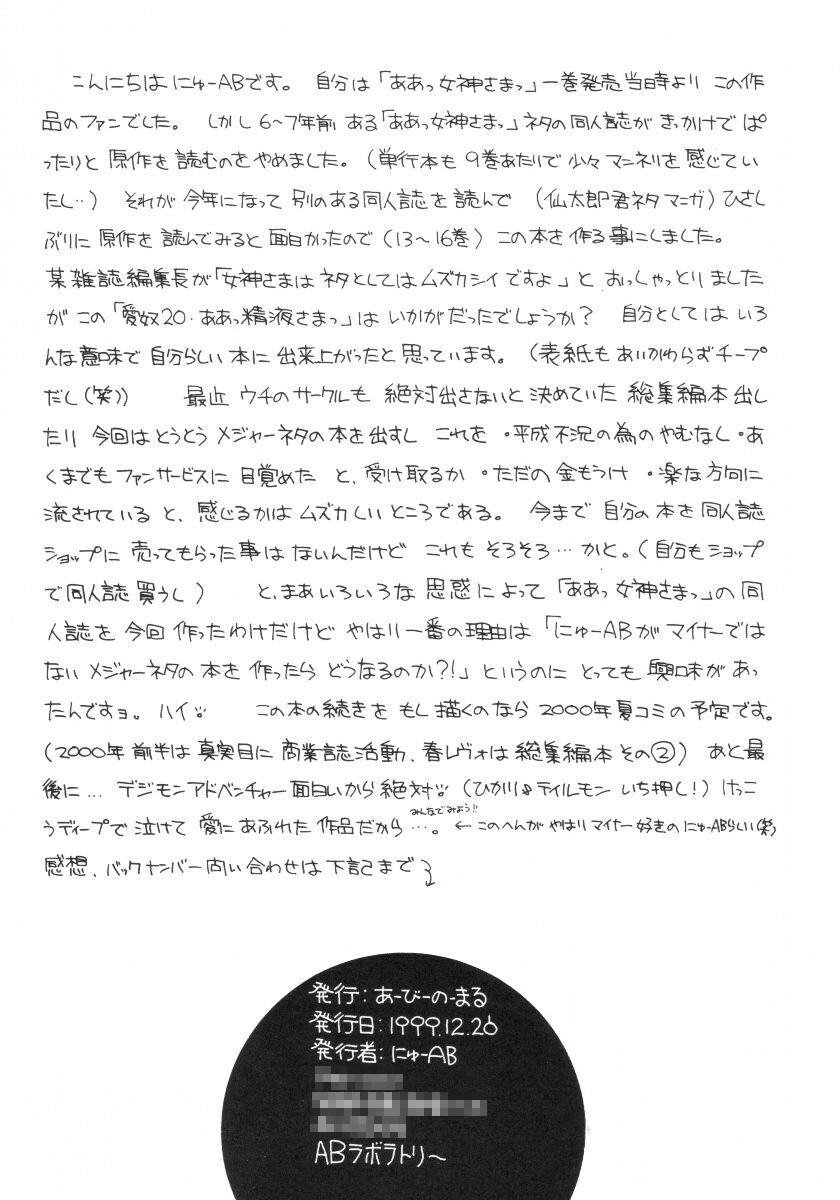 こんにちは にゅーABです。 自分は「ああっ女神さまっ」一巻発売当時より この作
品のファンでした。 しかし 6〜7年前 ある「ああっ女神さまっ」ネタの同人誌が きっかけで ぱ
ったりと 原作を 読むのをやめました。(単行本も 9巻あたりで 少々 マンネリを 感じてい
たし‥) それが 今年になって 別のある同人誌を 読んで (仙太郎君ネタ マンガ) ひさし
ぶりに 原作を 読んでみると 面白かったので (13〜16巻) この本を作る事にしました。
某雑誌編集長が「女神さまは ネタとしては ムズカシイですよ」と おっしゃっとりました
が この「愛奴20・ああっ精液さまっ」は いかがだったでしょうか? 自分としては いろ
んな意味で 自分らしい本に 出来上がったと 思っています。(表紙も あいかわらずチープ
だし(笑)) 最近 ウチのサークルも 絶対出さないと 決めていた 総集編本 出し
たり 今回は とうとう メジャーネタの本を出すし これを ・平成不況の為のやむなし ・あ
くまでもファンサービスに 目覚めた と、受け取るか ・ただの金もうけ ・楽な方向に
流されている と、感じるかは ムズカしい ところである。 今まで 自分の本を 同人誌
ショップに 売ってもらった事は ないんだけど これも そろそろ…かと。(自分もショップ
で同人誌買うし) と、まあいろいろな 思惑によって「ああっ女神さまっ」の同
人誌を 今回 作ったわけだけど やはり一番の理由は「にゅーABが マイナーでは
ない メジャーネタの本を 作ったら どうなるのか?!」というのに とっても 興味があっ
たんですョ。ハイ。 この本の続きを もし描くのなら 2000年夏コミの予定です。
(2000年 前半は 真実目に 商業誌活動、春レヴォは総集編本 その②) あと最
後に… デジモンアドベンチャー面白いから絶対!! (ひかり&テイルモン いち押し!) けっこ
うディープで 泣けて 愛にあふれた 作品だから…。 みんなでみよう!! ← このへんが やはりマイナー好きの にゅーABらしい(笑)
感想、バックナンバー問い合わせは 下記まで
発行:あーびーの-まる
発行日:1999.12.26
発行者:にゅーAB
ABラボラトリ〜